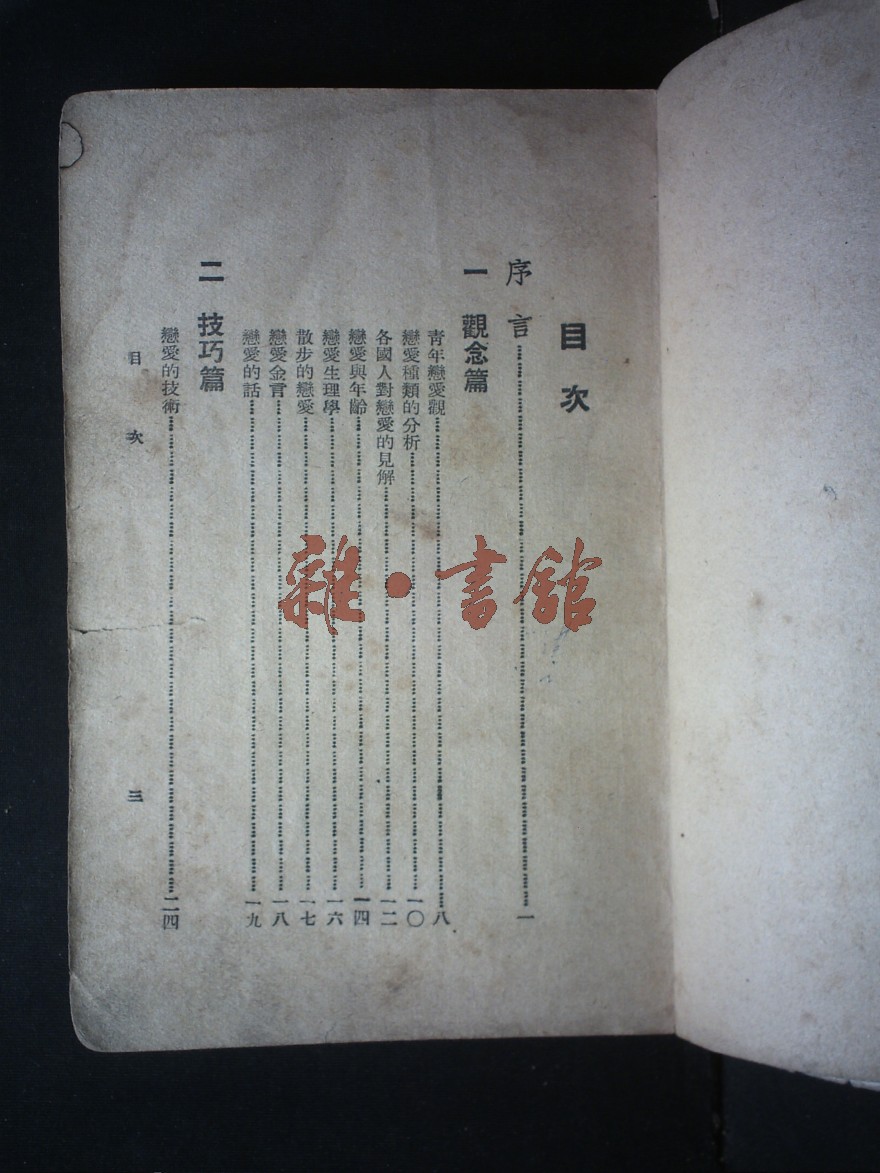 目次
序言一
一 觀念篇
青年戀愛觀八
戀愛種類的分析一〇
各國人對戀愛的見解一二
戀愛與年齡一四
戀愛生理學一六
散步的戀愛一七
戀愛金言一八
戀愛的話一九
二 技巧篇
戀愛的技術二四
目次 三
雜·書館